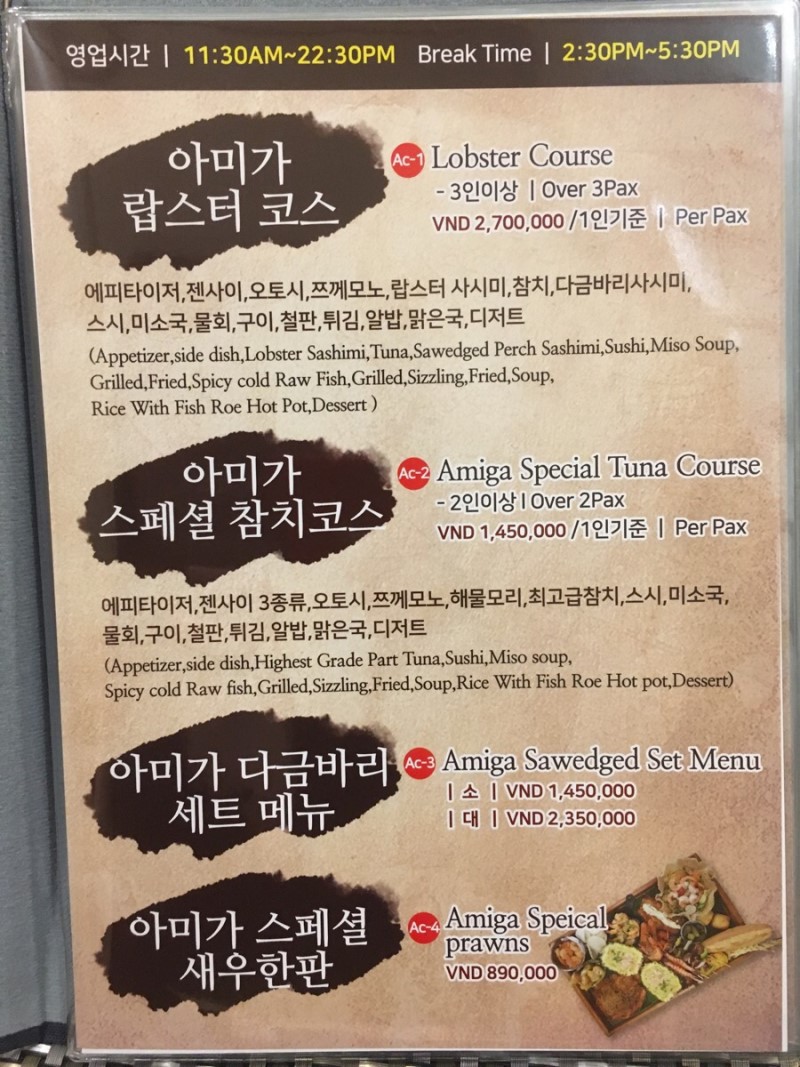 영업시간 | 11:30AM~22:30PM Break Time | 2:30PM~5:30PM
아미가
랍스터 코스
Ac-1 Lobster Course
- 3인이상 | Over 3Pax
VND 2,700,000 /1인기준 | Per Pax
에피타이저,젠사이,오토시,쯔께모노,랍스터 사시미,참치,다금바리사시미,
스시,미소국,물회,구이,철판,튀김,알밥,맑은국,디저트
(Appetizer,side dish,Lobster Sashimi,Tuna,Sawedged Perch Sashimi,Sushi,Miso Soup,
Grilled,Fried,Spicy cold Raw Fish,Grilled,Sizzling,Fried,Soup,
Rice With Fish Roe Hot Pot,Dessert )
아미가
스페셜 참치코스
Ac-2 Amiga Special Tuna Course
- 2인이상 l Over 2Pax
VND 1,450,000 /1인기준 | Per Pax
에피타이저,젠사이 3종류,오토시,쯔께모노,해물모리,최고급참치,스시,미소국,
물회,구이,철판,튀김,알밥,맑은국,디저트
(Appetizer,side dish,Highest Grade Part Tuna,Sushi,Miso soup,
Spicy cold Raw fish,Grilled,Sizzling,Fried,Soup,Rice With Fish Roe Hot pot,Dessert)
아미가 다금바리
세트 메뉴
Ac-3 Amiga Sawedged Set Menu
| 소 | VND 1,450,000
| 대 | VND 2,350,000
아미가 스페셜
새우한판
Ac-4 Amiga Speical
prawns
VND 890,000